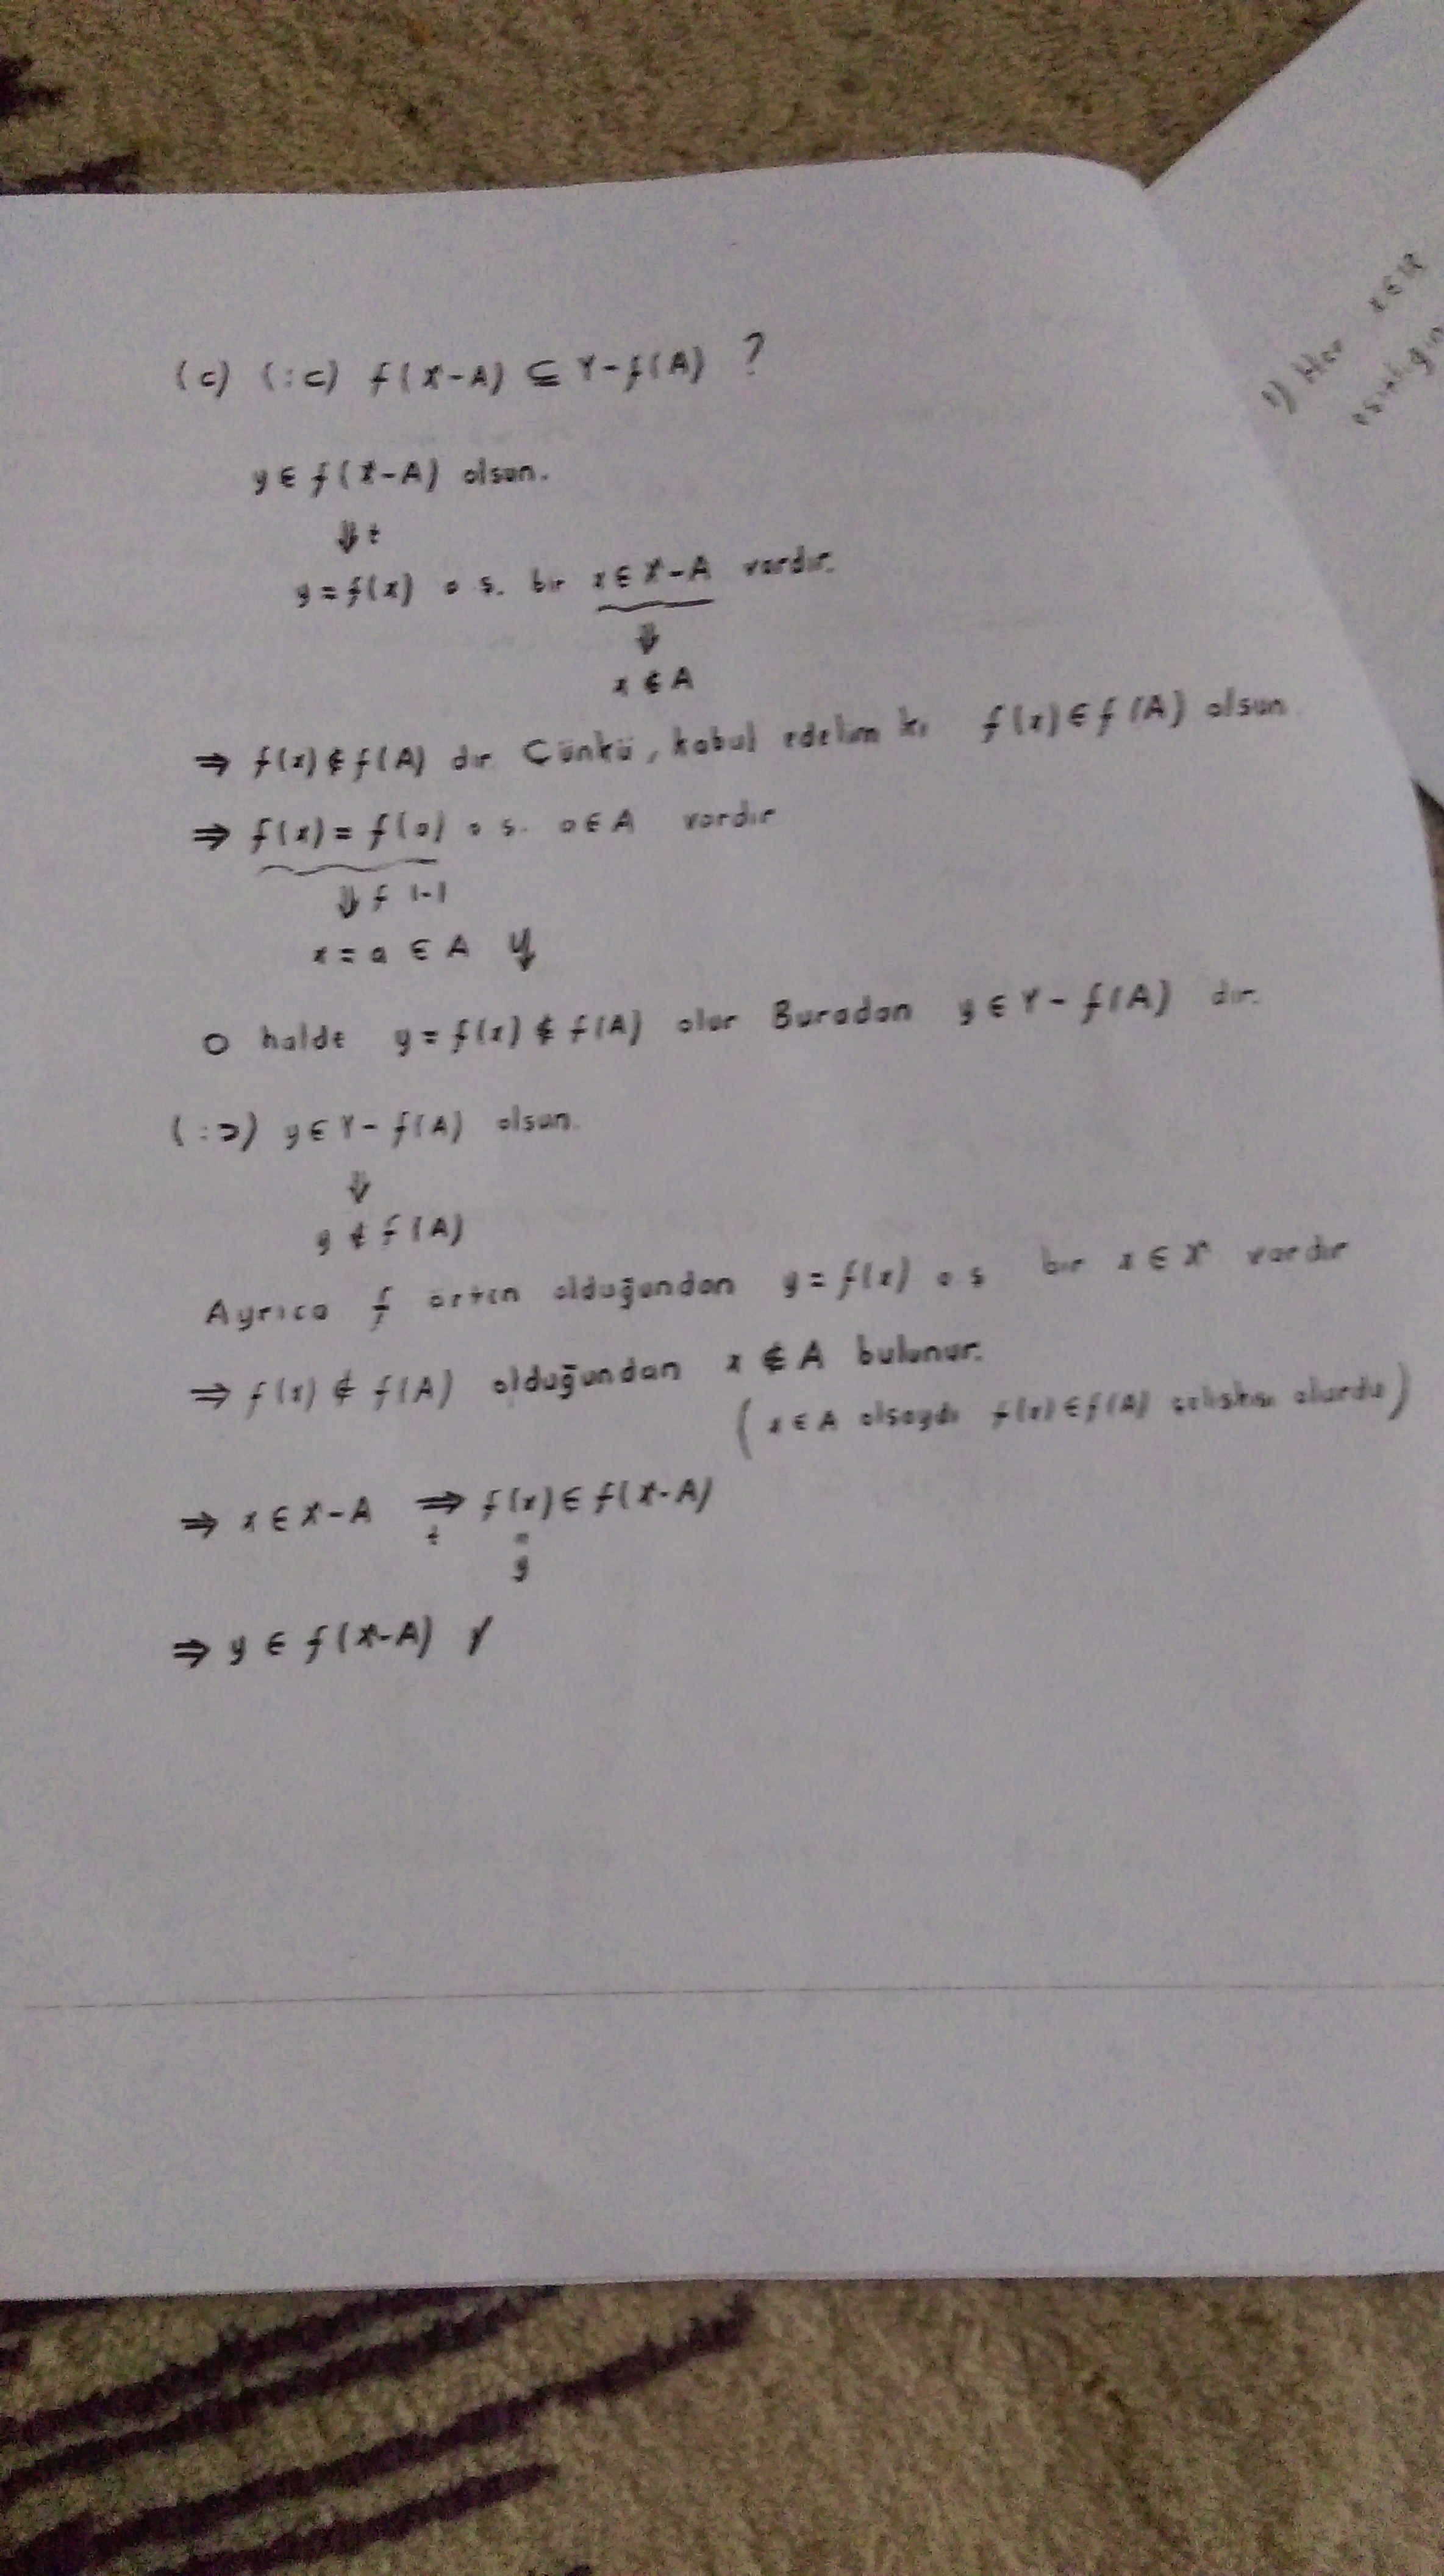 (c) (:⊂) f(X-A) ⊆ Y-f(A) ?
y ∈ f(X-A) olsun.
⇓ t
y = f(x) o.ş. bir x ∈ X-A vardır.
⇓
x ∉ A
⇒ f(x) ∉ f(A) dır. Çünkü, kabul edelim ki f(x) ∈ f(A) olsun.
⇒ f(x) = f(a) o.ş. a ∈ A vardır
⇓ f 1-1
x = a ∈ A
O halde y = f(x) ∉ f(A) olur Buradan y ∈ Y - f(A) dır.
(:⊃) y ∈ Y - f(A) olsun.
⇓
y ∉ f(A)
Ayrıca f örten olduğundan y = f(x) o.ş bir x ∈ X vardır
⇒ f(x) ∉ f(A) olduğundan x ∉ A bulunur.
(x ∈ A olsaydı f(x) ∈ f(A) çelişkisi olurdu)
⇒ x ∈ X-A ⇒ f(x) ∈ f(X-A)
t "
y
⇒ y ∈ f(X-A) √
1) Her x∈ℝ